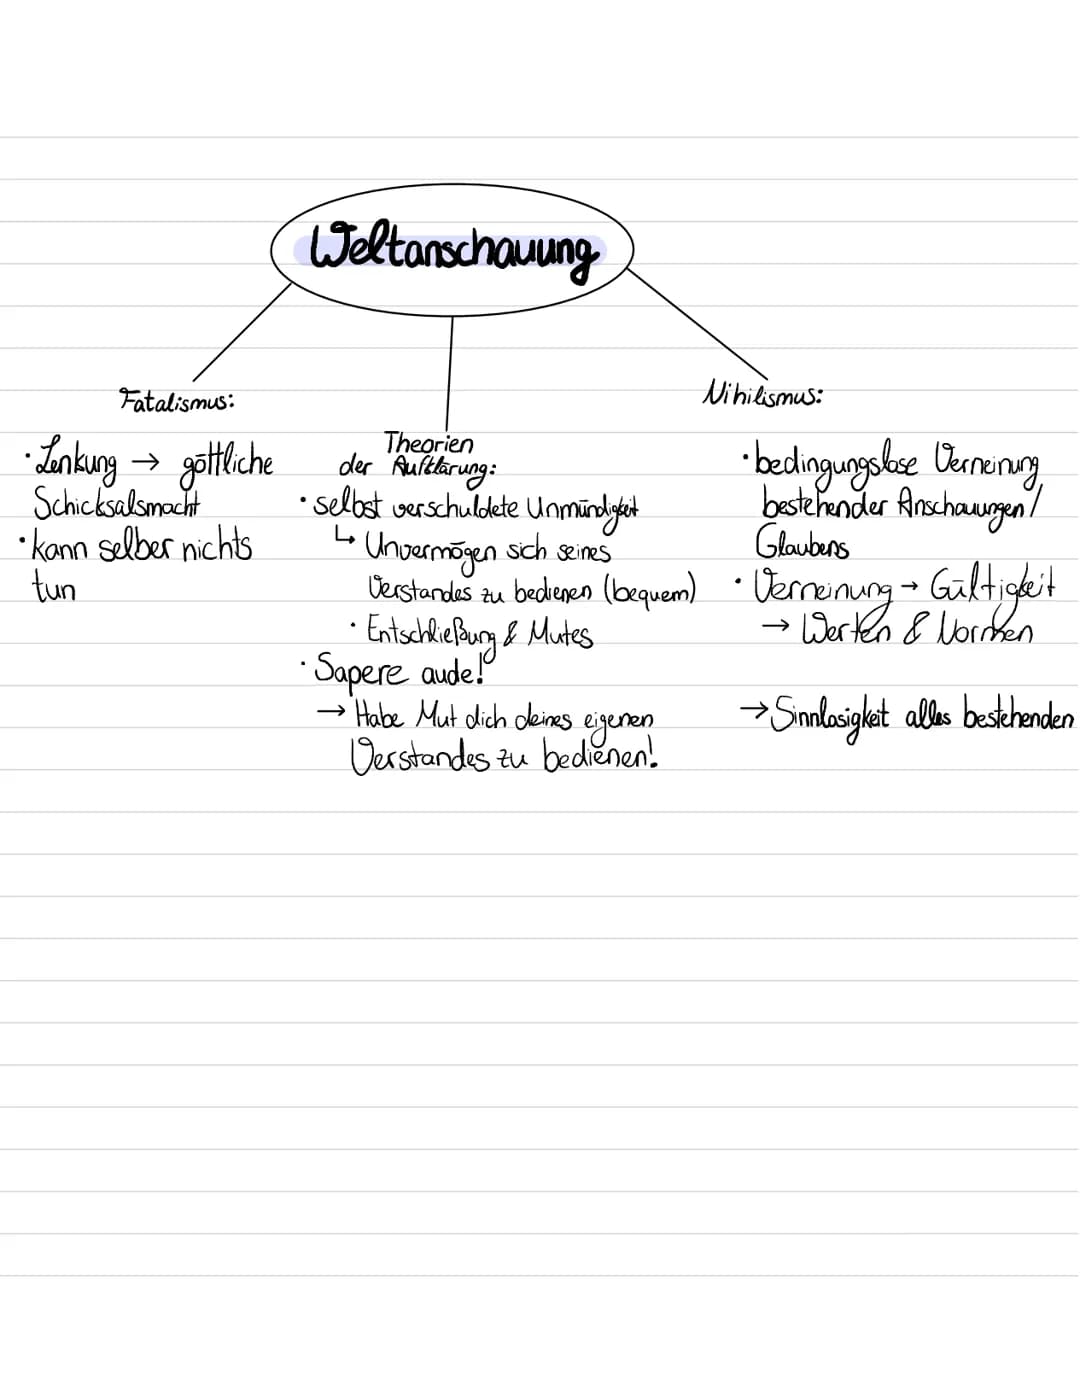 Weltanschauung
Fatalismus:
· Lenkung → göttliche
Schicksalsmacht
· kann selber nichts
tun
Theorien
der Aufklärung:
· selbst verschuldete Unmündigkeit
↳ Unvermögen sich seines
Verstandes zu bedienen (bequem)
· Entschließung & Mutes
· Sapere aude!
→ Habe Mut dich deines eigenen
Verstandes zu bedienen!
Nihilismus:
· bedingungslose Verneinung
bestehender Anschauungen/
Glaubens
· Verneinung → Gültigkeit
→ Werten & Normen
→ Sinnlosigkeit alles bestehenden